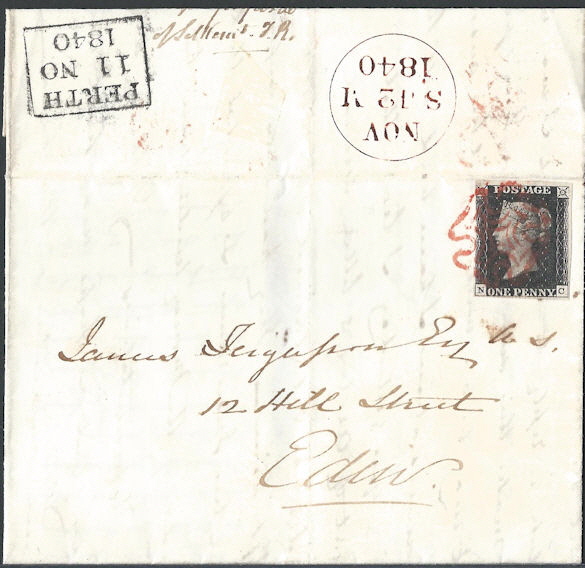 of Settlemt. J.R.
PERTH
11 NO
1840
NOV
S 12 M
1840
POSTAGE
N ONE PENNY. C
James Ferguson Esq W.S.
12 Hill Street
Edinr.